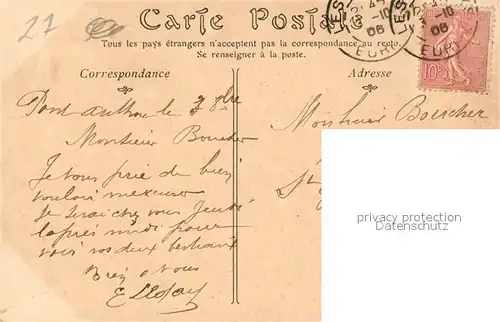 27
Carte Postale
Tous les pays étrangers n'acceptent pas la correspondance au recto.
Se renseigner à la poste.
Correspondance
Adresse
LES
3 -10
06
EURE
10
Pont authou le 3 8bre
Monsieur Boucher
Monsieur Boucher
Je vous prie de bien
vouloir m'excuser
Je serai chez vous Jeudi
l'après midi pour
voir vos deux
Bien a vous
privacy protection
Wasserzeichen nicht auf Original